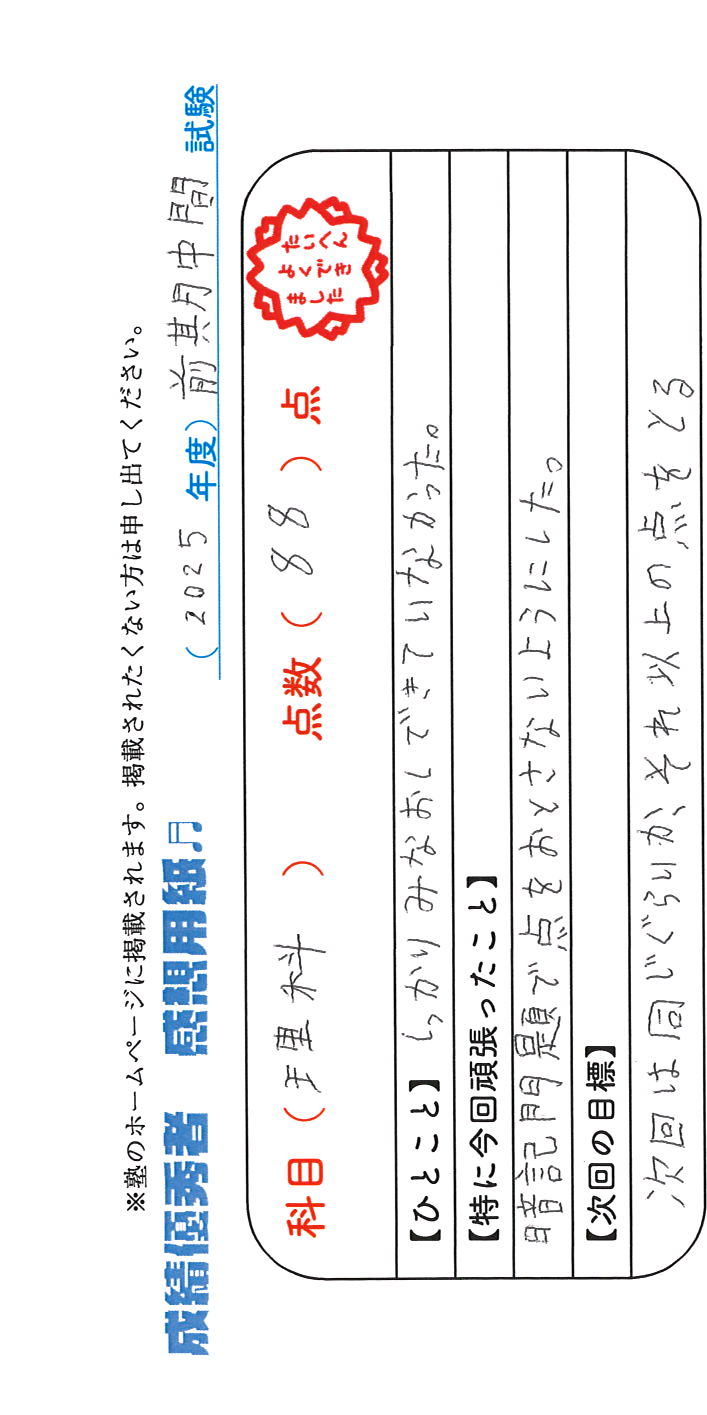 ※塾のホームページに掲載されます。掲載されたくない方は申し出てください。
成績優秀者 感想用紙♫ (2025年度)前期中間試験
科目(理科) 点数(88)点
たいへん
よくでき
ました
【ひとこと】しっかりみなおしできていなかった。
【特に今回頑張ったこと】
暗記問題で点をおとさないようにした。
【次回の目標】
次回は同じぐらいか、それ以上の点をとる